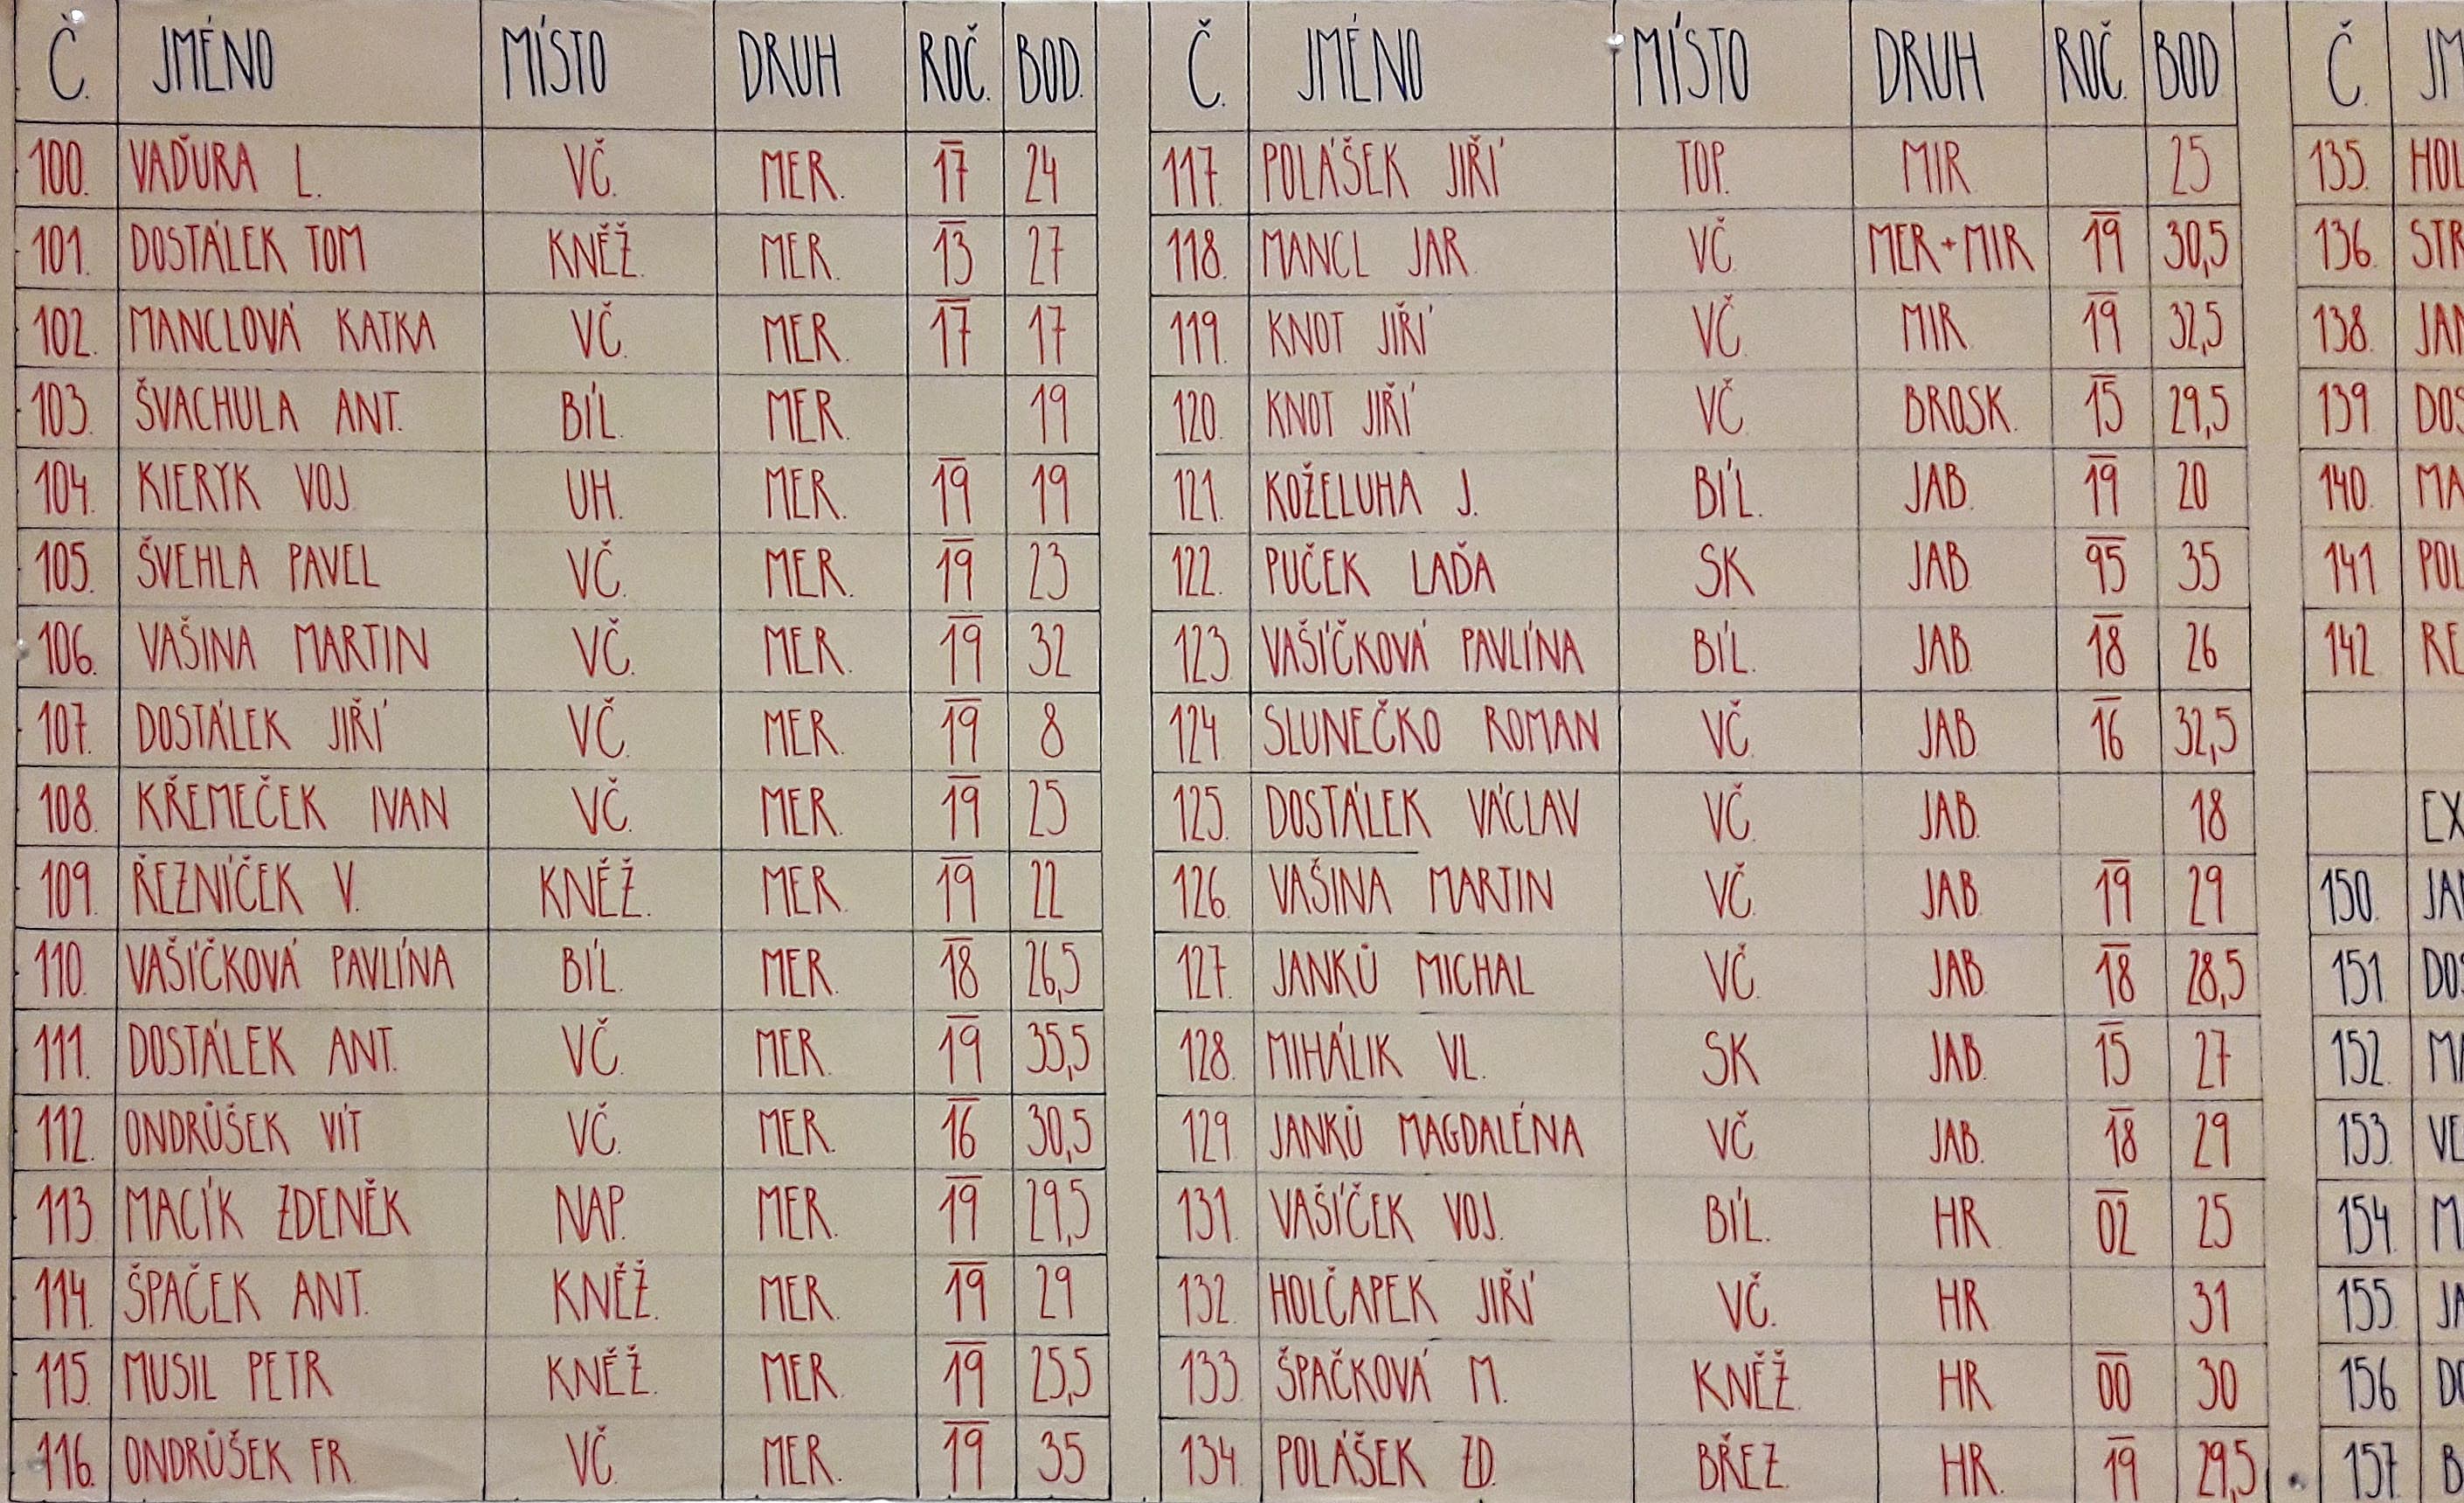 Č. JMÉNO MÍSTO DRUH ROČ. BOD.
100. VAĎURA L. VČ. MER. 17 24
101. DOSTÁLEK TOM KNĚŽ. MER. 13 27
102. MANCLOVÁ KATKA VČ. MER. 17 17
103. ŠVACHULA ANT. BÍL. MER. 19
104. KIERYK VOJ. UH. MER. 19 19
105. ŠVEHLA PAVEL VČ. MER. 19 23
106. VAŠINA MARTIN VČ. MER. 19 32
107. DOSTÁLEK JIŘÍ VČ. MER. 19 8
108. KŘEMEČEK IVAN VČ. MER. 19 25
109. ŘEZNÍČEK V. KNĚŽ. MER. 19 22
110. VAŠÍČKOVÁ PAVLÍNA BÍL. MER. 18 26,5
111. DOSTÁLEK ANT. VČ. MER. 19 35,5
112. ONDRŮŠEK VÍT VČ. MER. 16 30,5
113 MACÍK ZDENĚK NAP. MER. 19 29,5
114. ŠPAČEK ANT. KNĚŽ. MER. 19 29
115 MUSIL PETR KNĚŽ. MER. 19 25,5
116. ONDRŮŠEK FR. VČ. MER. 19 35
Č. JMÉNO MÍSTO DRUH ROČ. BOD
117. POLÁŠEK JIŘÍ TOP. MIR 25
118. MANCL JAR. VČ. MER+MIR 19 30,5
119. KNOT JIŘÍ VČ. MIR 19 32,5
120. KNOT JIŘÍ VČ. BROSK. 15 29,5
121. KOŽELUHA J. BÍL. JAB. 19 20
122. PUČEK LAĎA SK JAB. 95 35
123. VAŠÍČKOVÁ PAVLÍNA BÍL. JAB. 18 26
124. SLUNEČKO ROMAN VČ. JAB 16 32,5
125. DOSTÁLEK VÁCLAV VČ. JAB. 18
126. VAŠINA MARTIN VČ. JAB 19 29
127. JANKŮ MICHAL VČ. JAB 18 28,5
128. MIHÁLIK VL. SK JAB. 15 27
129. JANKŮ MAGDALÉNA VČ JAB. 18 29
131. VAŠÍČEK VOJ. BÍL. HR. 02 25
132. HOLČAPEK JIŘÍ VČ. HR 31
133. ŠPAČKOVÁ M. KNĚŽ. HR 00 30
134. POLÁŠEK ZD. BŘEZ. HR. 19 29,5
Č. JM
135. HOL
136. STR
138. JAN
139 DOS
140. MA
141 POL
142 RE
EX
150. JAN
151 DOS
152. MA
153. VE
154. M
155. JA
156 DO
157. B